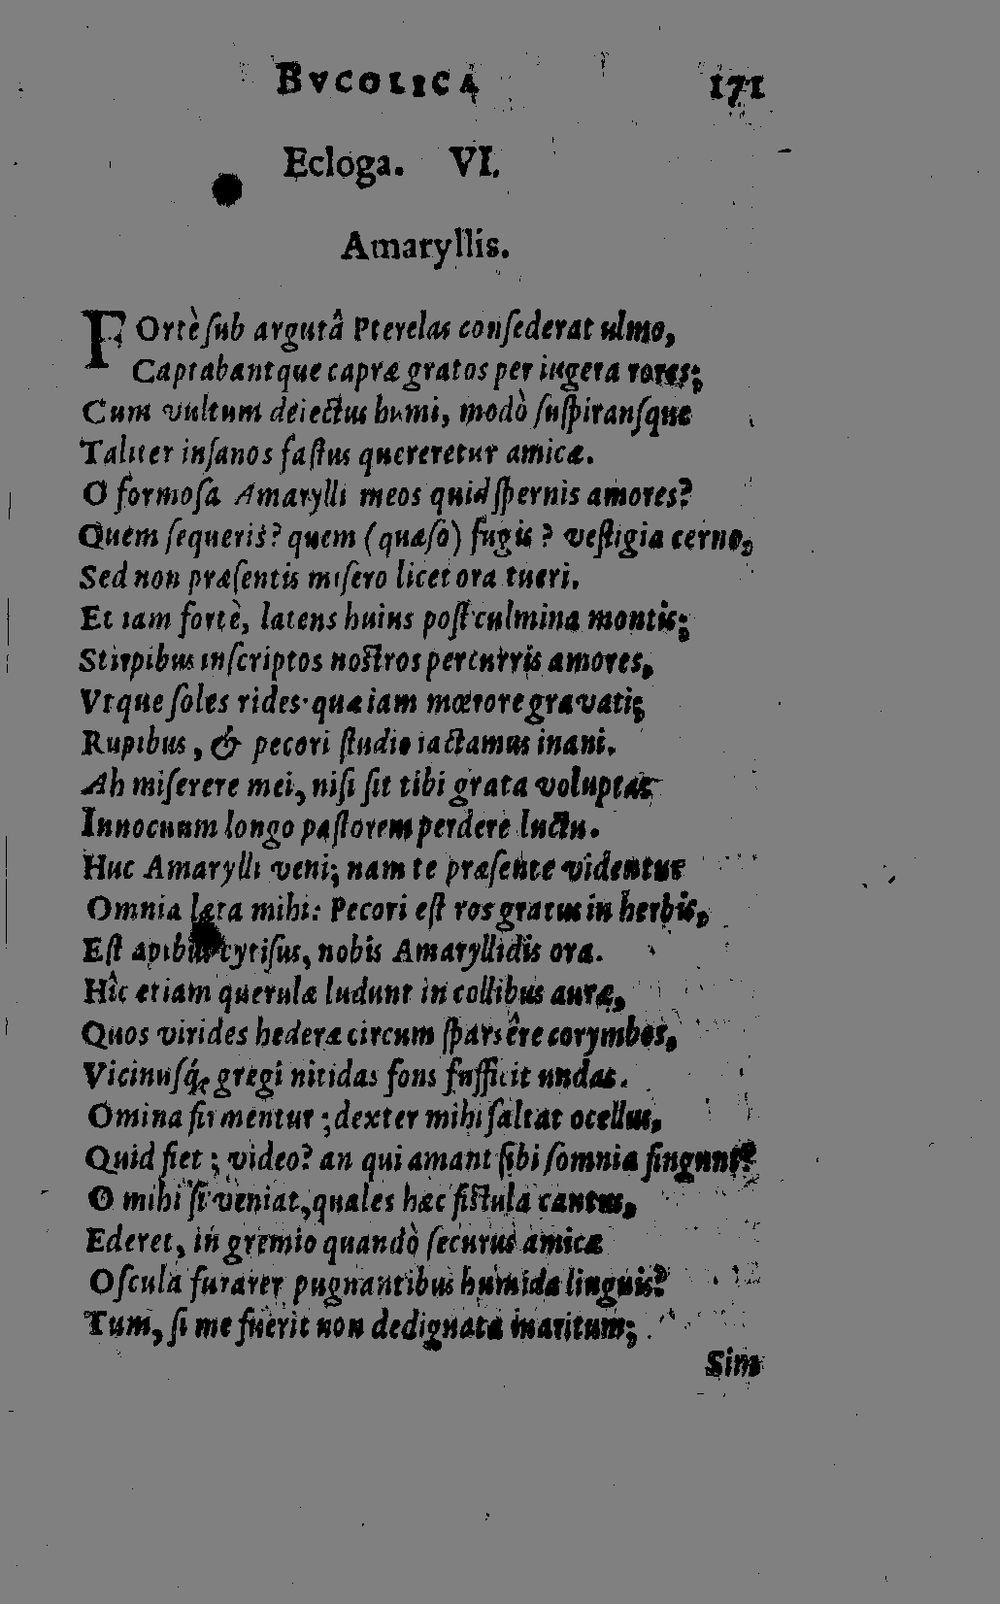 BVCOLICA 171
Ecloga. VI.
Amaryllis.
FOrtè ſub argutâ Pterelas conſederat ulmo,
Captabantque capræ gratos per iugera rores;
Cum vultum deiectus humi, modò ſuſpiranſque
Taliter inſanos faſtus quereretur amicæ.
O formoſa Amarylli meos quid ſpernis amores?
Quem ſequeris? quem (quæſo) fugis? veſtigia cerno,
Sed non præſentis miſero licet ora tueri.
Et iam fortè, latens huius poſt culmina montis;
Stirpibus inſcriptos noſtros percurris amores,
Vtque ſoles rides· quæ iam mœrore gravatis
Rupibus, & pecori ſtudio iactamus inani.
Ah miſerere mei, niſi ſit tibi grata voluptas
Innocuum longo paſtorem perdere luctu.
Huc Amarylli veni; nam te præſente videntur
Omnia læta mihi: Pecori eſt ros gratus in herbis,
Eſt apibus cytiſus, nobis Amaryllidis ora.
Hîc etiam querulæ ludunt in collibus auræ,
Quos virides hederæ circum ſparsêre corymbos,
Vicinuſq́ue gregi nitidas fons ſufficit undas.
Omina ſi mentur; dexter mihi ſaltat ocellus,
Quid fiet; video? an qui amant ſibi ſomnia fingunt?
O mihi ſi veniat, quales hæc fiſtula cantus,
Ederet, in gremio quandò ſecurus amicæ
Oſcula furarer pugnantibus humida linguis?
Tum, ſi me fuerit non dedignata maritum;
Sim